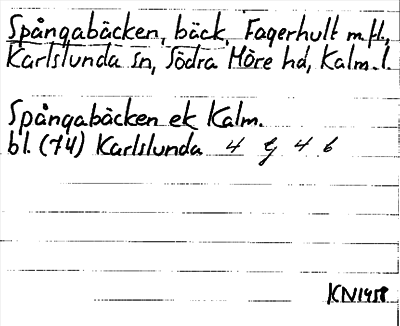 Spångabäcken, bäck, Fagerhult m.fl.,
Karlslunda sn, Södra Möre hd, Kalm. l.
Spångabäcken ek Kalm.
bl. (74) Karlslunda 4 G 4 b
KN1958